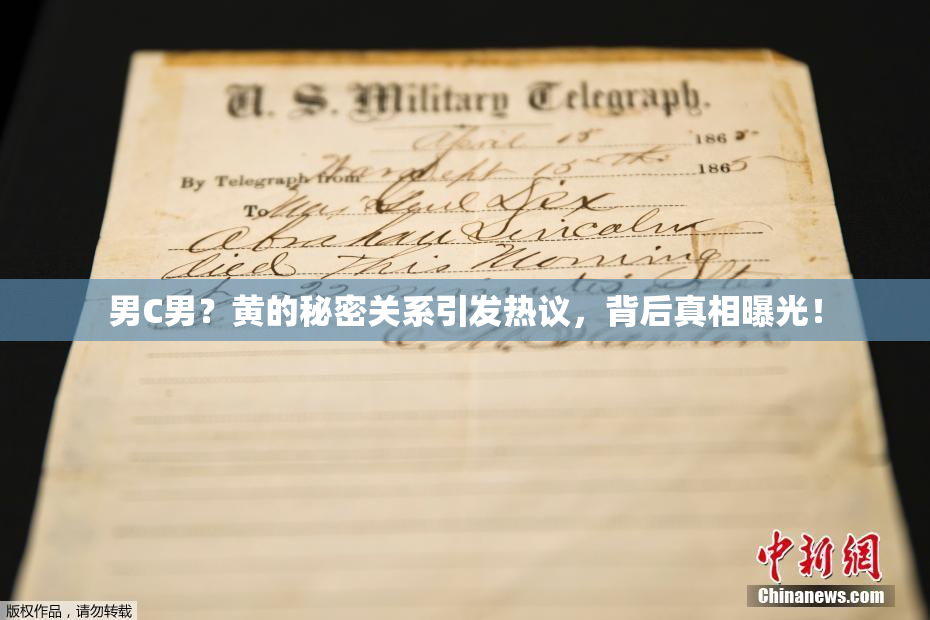 U. S. Military Telegraph.
April 15 1865
By Telegraph from War Dept 15th 1865
To Maj Genl Dix
Abraham Lincoln
died This Morning
at 22 minutes after
男C男？黄的秘密关系引发热议，背后真相曝光！
E. M. Stanton
中新网
Chinanews.com
版权作品，请勿转载